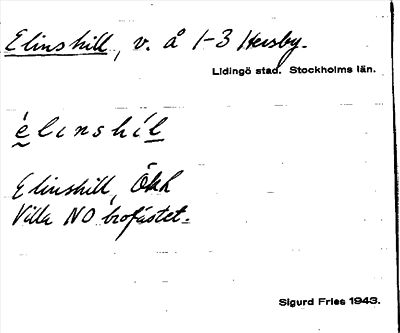 Elinshill, v. å 1-3 Hersby.
Lidingö stad. Stockholms län.
élinshíl
Elinshill, Ökh
Villa NO brofästet.
Sigurd Fries 1943.